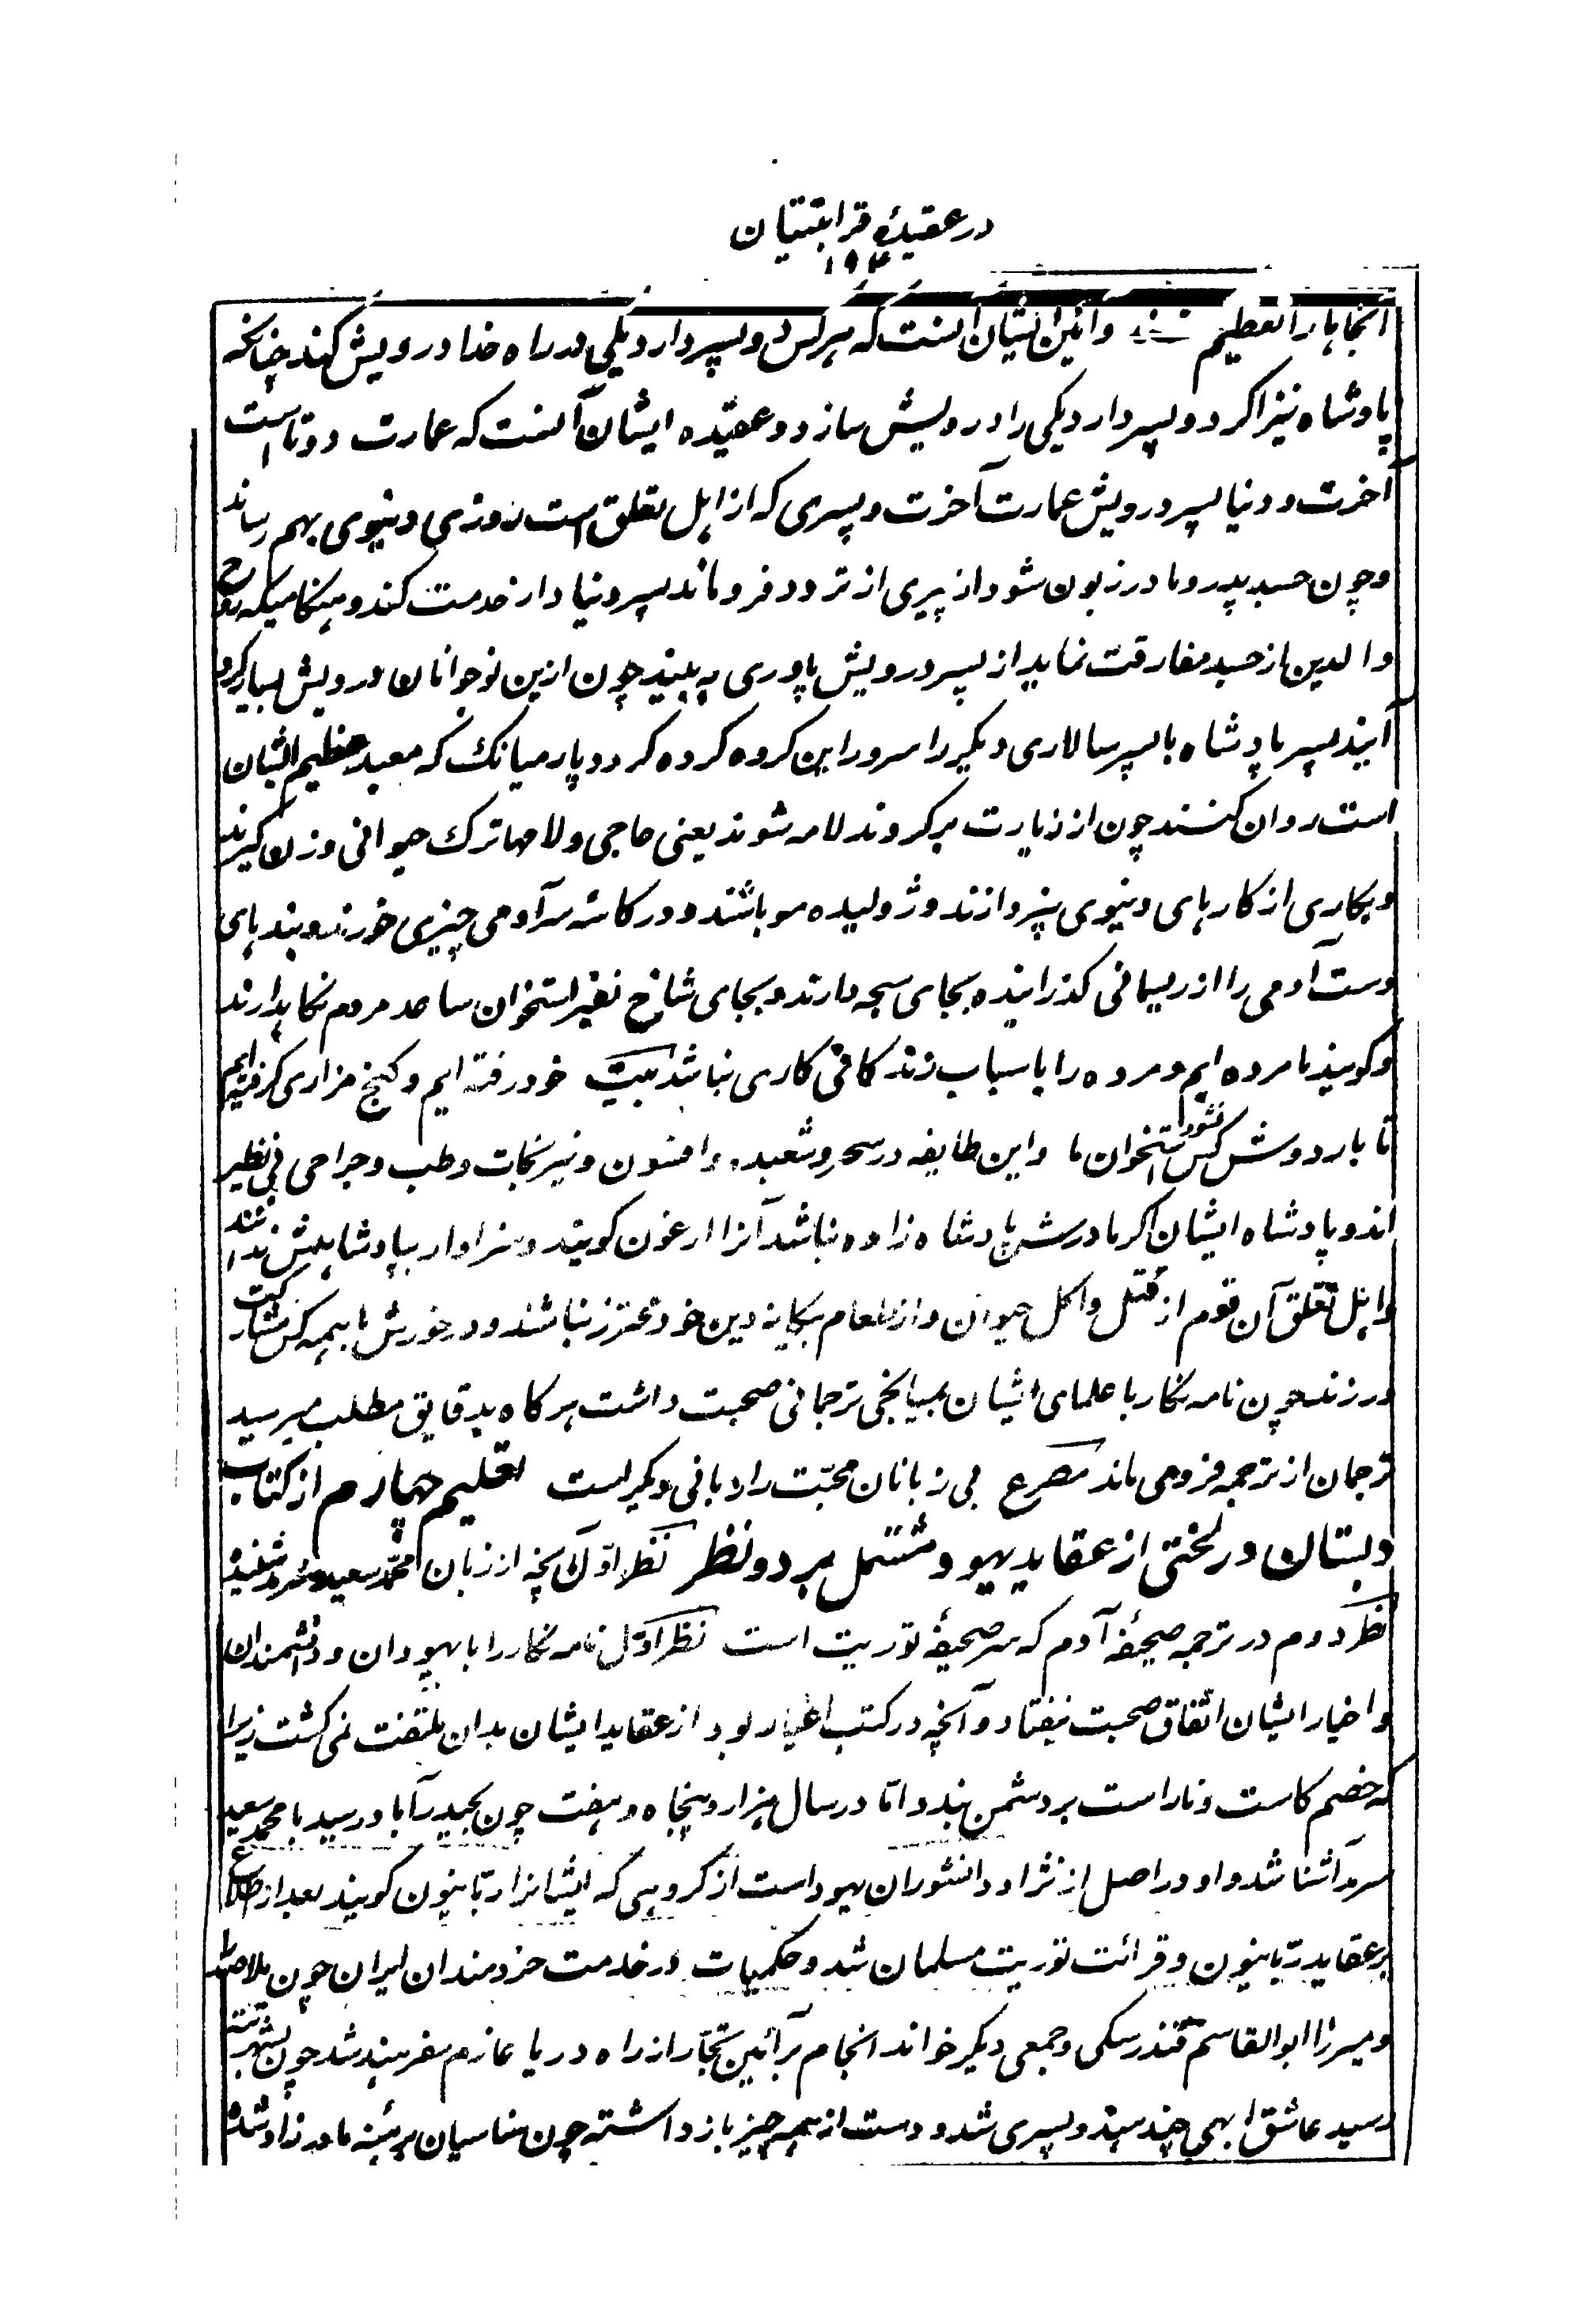 در عقیدهٔ قرابتتیان
۱۹۴
آنجاها را تعظیم کنند و آئین ایشان آنست که هر کس دو پسر دارد یکی در راه خدا درویش کند چنانکه
پادشاه نیز اگر دو پسر دارد یکی را درویش سازد و عقیده ایشان آنست که عمارت دو تا است
آخرت و دنیا پسر درویش عمارت آخرت و پسری که از اهل تعلق است روزی دنیوی بهم رساند
و چون جسد پدر و مادر زبون شود از پیری از تردد فرو ماند پسر دنیا دار خدمت کند و هنگامیکه روح
والدین از جسد مفارقت نماید از پسر درویش یاوری به بیند چون ازین نوجوانان درویش بسیار گرد
آیند پسر پادشاه یا پسر سالاری دیگر را سرور این گروه کرده کرد و پار میانک که معبد عظیم ایشان
است روان کنند چون از زیارت برگردند لامه شوند یعنی حاجی و لامها ترک حیوانی و زن گیرند
و بکاری از کارهای دنیوی نپردازند و ژولیده مو باشند و در کاسه سر آدمی چیزی خورند و بندهای
دست آدمی را از ریسمانی گذرانیده بجای سبحه دارند و بجای شاخ نفیر استخوان ساعد مردم نگاهدارند
و گویند ما مرده ایم و مرده را با سباب زندگانی کاری نباشد بیت خود رفته ایم و کنج مزاری گرفته ایم
تا بار دوش کس نشود استخوان ما و این طایفه در سحر و شعبده و افسون و نیرنجات و طب و جراحی بی نظیر
اند و پادشاه ایشان اگر مادرش پادشاه زاده نباشد آنرا ارغون گویند و سزاوار بپادشاهیش ندانند
و اهل تعلق آن قوم از قتل و اکل حیوان و از طعام بیگانه دین خود محترز نباشند و در خورش با همه کس مشارکت
ورزند چون نامه نگار با علمای ایشان بمیانجی ترجمانی صحبت داشت هر گاه بدقایق مطلب میرسید
ترجمان از ترجمه فرو می ماند مصرع بی زبانان محبت را زبانی دیگر است تعلیم چهارم از کتاب
دبستان در لختی از عقاید یهود مشتمل بر دو نظر نظر اول آنچه از زبان محمد سعید سرمد شنیده
نظر دوم در ترجمه صحیفه آدم که سر صحیفهٔ توریت است نظر اول نامه نگار را با یهودان و دانشمندان
و اخبار ایشان اتفاق صحبت نیفتاد و آنچه در کتب اغیار بود از عقاید ایشان بدان ملتفت نمی گشت زیرا
که خصم کاست و ناراست بر دشمن بندد اما در سال هزار و پنجاه و هفت چون بحیدرآباد رسید با محمد سعید
سرمد آشنا شد و او در اصل از نژاد دانشوران یهود است از گروهی که ایشانرا ربانیون گویند بعد از اطلاع
بر عقاید ربانیون و قرائت توریت مسلمان شد و حکمیات در خدمت خردمندان ایران چون ملا صدرا
و میرزا ابوالقاسم فندرسکی و جمعی دیگر خواند انجام بر آئین تجار از راه دریا عازم سفر هند شد چون بشهر تته
رسید عاشق ابهی چند هندو پسری شد و دست از همه چیز باز داشته چون سناسیان برهنه مادرزاد شده